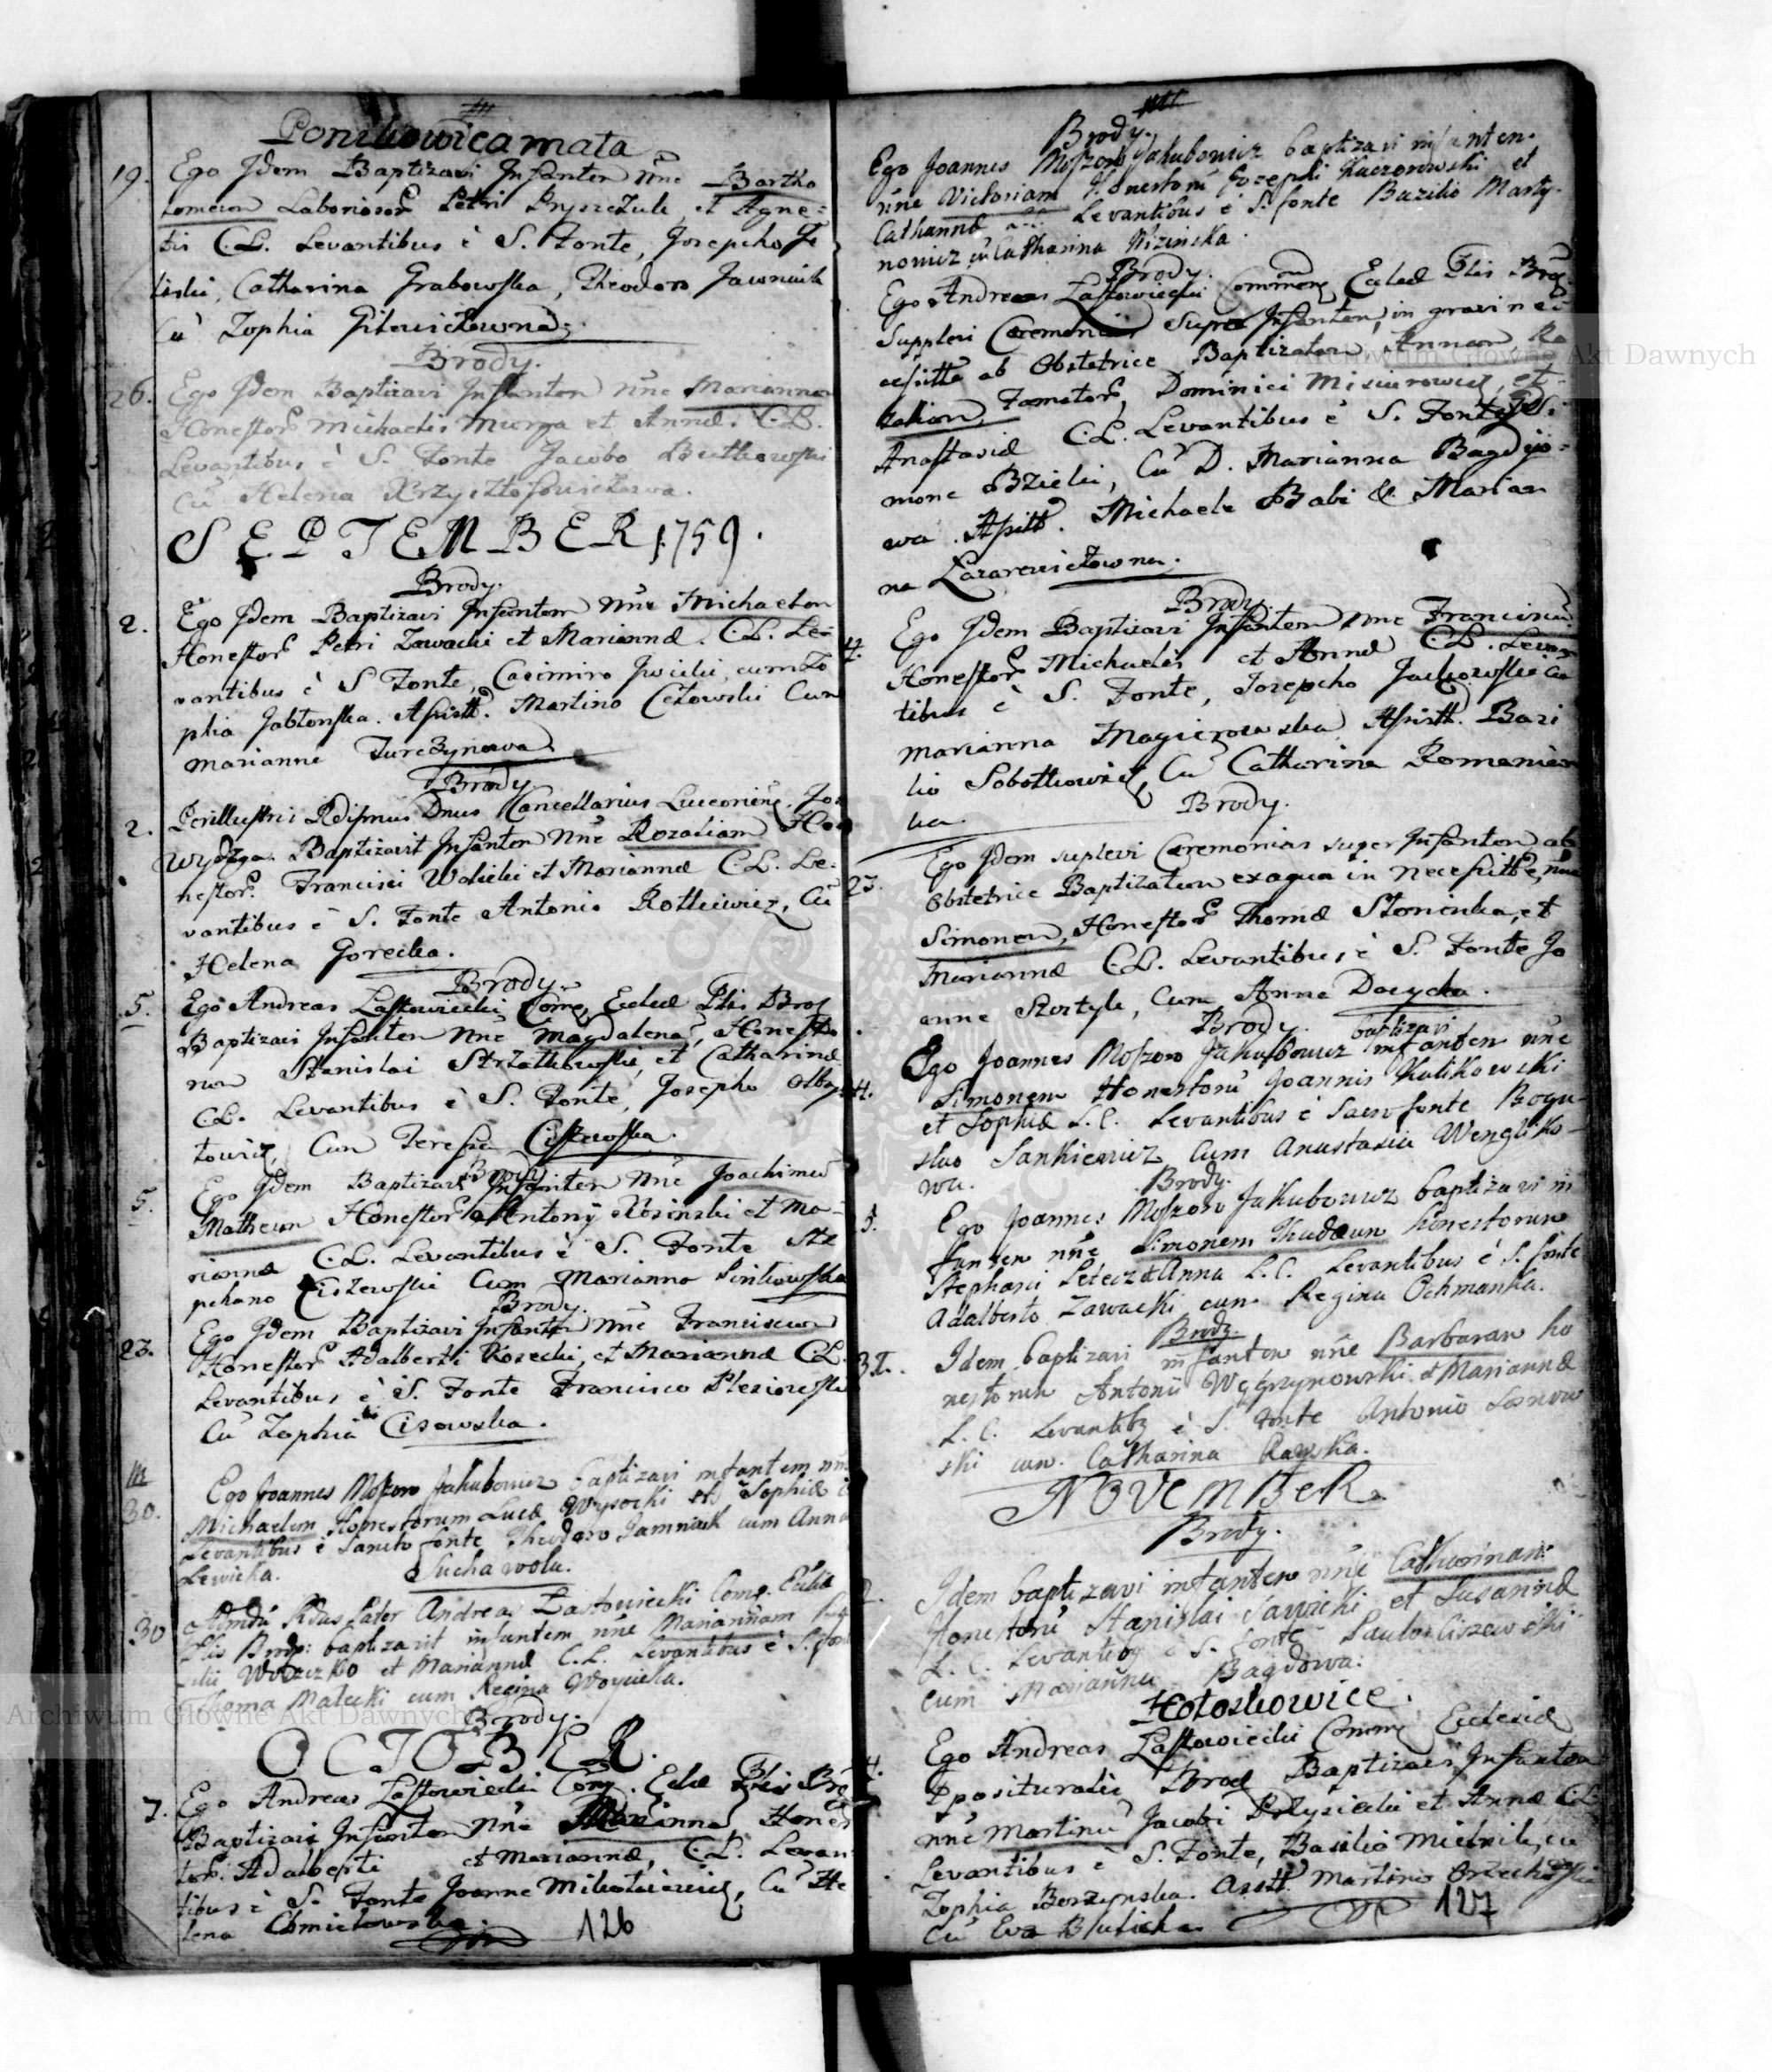 Ponikowica mała
19. Ego Idem Baptizavi Infantem nñe Bartho
lomeum Laborioso℞ Petri Pryszczule, et Agne=
tis C.L. Levantibus è S. Fonte, Josepho
Catharina Grabowska, Theodoro Jawniuk
Cũ Zophia
Brody.
26. Ego Idem Baptizavi Infantem nñe Mariannam
Honesto℞ Michaelis Murga et Annæ. C.L.
Levantibus è S. Fonte Jacobo Butkowski
Cũ Helena Krzysztofowiczowa.
SEPTEMBER 1759.
Brody.
2. Ego Idem Baptizavi Infantem nñe Michaelem
Honesto℞ Petri Zawacki et Mariannæ. C.L. Le=
vantibus è S Fonte, Casimiro cum Zo
phia Jabłonska. Assistt. Martino Cetowski Cum
Marianna Turczynowa
Brody
2. Perillustris Rdissimus Dnus Cancellarius Luceorien̄s.
Wydzga. Baptizavit Infantem nñe Rozaliam Ho
nesto℞. Francisci Wolicki et Mariannæ C.L. Le=
vantibus è S. Fonte Antonio Rotkiewicz, Cũ
Helena Gorecka.
Brody.
5. Ego Andreas Łastowiecki Com̄e, Ecclæ Ptis Brod
Baptizavi Infantem nñe Magdalenã, Honesto
rum Stanislai Strzałkowski, et Catharinæ
C.L. Levantibus è S. Fonte, Josepho
towicz, Cum Teressa Ciszewska.
Brody
5. Ego Idem Baptizavi Infantem nñe Joachimũ
Matheum Honesto℞ Antonij Rosinski et Ma=
riannæ C.L. Levantibus è S. Fonte Ste
phano Ciszewski Cum Marianna
Brody.
23. Ego Idem Baptizavi Infantẽ nñe Franciscum
Honesto℞ Adalberti Kosecki, et Mariannæ C.L.
Levantibus è S. Fonte Francisco
Cũ Zophia Cisowska.
30. Ego Joannes Moszoro Jakubowicz baptizavi infantem nñe
Michaelem Honestorum Lucæ Wysocki et Sophiæ
Levantibus è Sancto fonte Theodoro Jamniuk cum Anna
Lewicka.
Sucha wola.
30 Admdũ Rdus Pater Andreas Łastowiecki Com̄e. Eccliæ
Ptis Brod: baptizavit infantem nñe Mariannam
et Mariannæ C.L. Levantibus è S. fonte
Thoma Małecki cum Regina Woycicka.
Brody.
OCTOBER.
7. Ego Andreas Łastowiecki Com̄. Eclæ Ptis Bro
Baptizavi Infantem nñe Marianna Hones
to℞. Adalberti et Mariannæ, C.L. Levan
tibus è S. Fonte Joanne Cũ He
lena Chmielowska.
126
Brody.
Ego Joannes Moszoro Jakubowicz baptizavi infanten.
nñe Victoriam Honestorũ Josephi Kaczorowski et
Catharinæ Levantibus è S. fonte Bazilio Marty-
nowicz cũ Catharina Nizinska.
Brody.
Ego Andreas Łastowiecki Com̄en̄ Eclæ Ptis Brod
Supplevi Ceremonias Super Infantem, in gravi ne=
cessittẽ ab Obstetrice Baptizatam, Annam Ro
zaliam, Famato℞, Dominici Misiurowicz, et
Anastasiæ C.L. Levantibus è S. Fonte D. Si=
mone Bzicki, Cũ D. Marianna Bagdzio=
wa. Assistt. Michaele Babi & Marian
na Łazarewiczowna.
Brody.
Ego Idem Baptizavi Infantem nñe Franciscũ
Honesto℞ Michaelis et Annæ C.L. Levan
tibus è S. Fonte, Josepho Jackowski Cũ
Marianna Magierowska Assistt. Bazi
lio Sobotkowicz, Cũ Catharina Romanien
ka.
Brody.
23. Ego Idem suplevi Ceremonias super Infantem ab
Obstetrice Baptizatum ex aqua in necessittẽ, nñe
Simonem, Honesto℞ Thomæ Słoninka, et
Mariannæ C.L. Levantibus è S. Fonte Jo
anne Kortyla, Cum Anna Dacycha.
Brody.
Ego Joannes Moszoro Jakubowicz baptizavi infantem nñe
Simonem Honestorũ Joannis Kulikowski
et Sophiæ L.C. Levantibus è Sacro fonte Bogu-
slao Sankiewicz Cum Anastasia Wengliko-
wa.
Brody.
Ego Joannes Moszoro Jakubowicz baptizavi in
fantem nñe Simonem Thadæum honestorum
Stephani et Anna L.C. Levantibus è S. fonte
Adalberto Zawacki cum Regina Ochmanka.
Brody.
31. Idem baptizavi infantem nñe Barbaram ho
nestorum Antonii Węgrzynowski et Mariannæ
L.C. Levantibꝫ è S. fonte Antonio Losnow
ski cum Catharina Rayska.
NOVEMBER.
Brody.
2. Idem baptizavi infantem nñe Catharinam
Honestorũ Stanislai Sawicki et Susannæ
L.C. Levantibꝫ è S. fonte Paulo Ciszewski
cum Marianna Bagdowa.
Hołoskowice.
4. Ego Andreas Łastowiecki Com̄en̄ Ecclesiæ
Pposituralis Brod Baptizavi Infantem
nñe Martinũ Jacobi et Annæ C.L.
Levantibus è S. Fonte, Basilio Mielnik, cũ
Zophia Borzynska. Assitt. Martino Orzechowski
Cũ Eva Blulicka
127
Archiwum Główne Akt Dawnych
Archiwum Główne Akt Dawnych